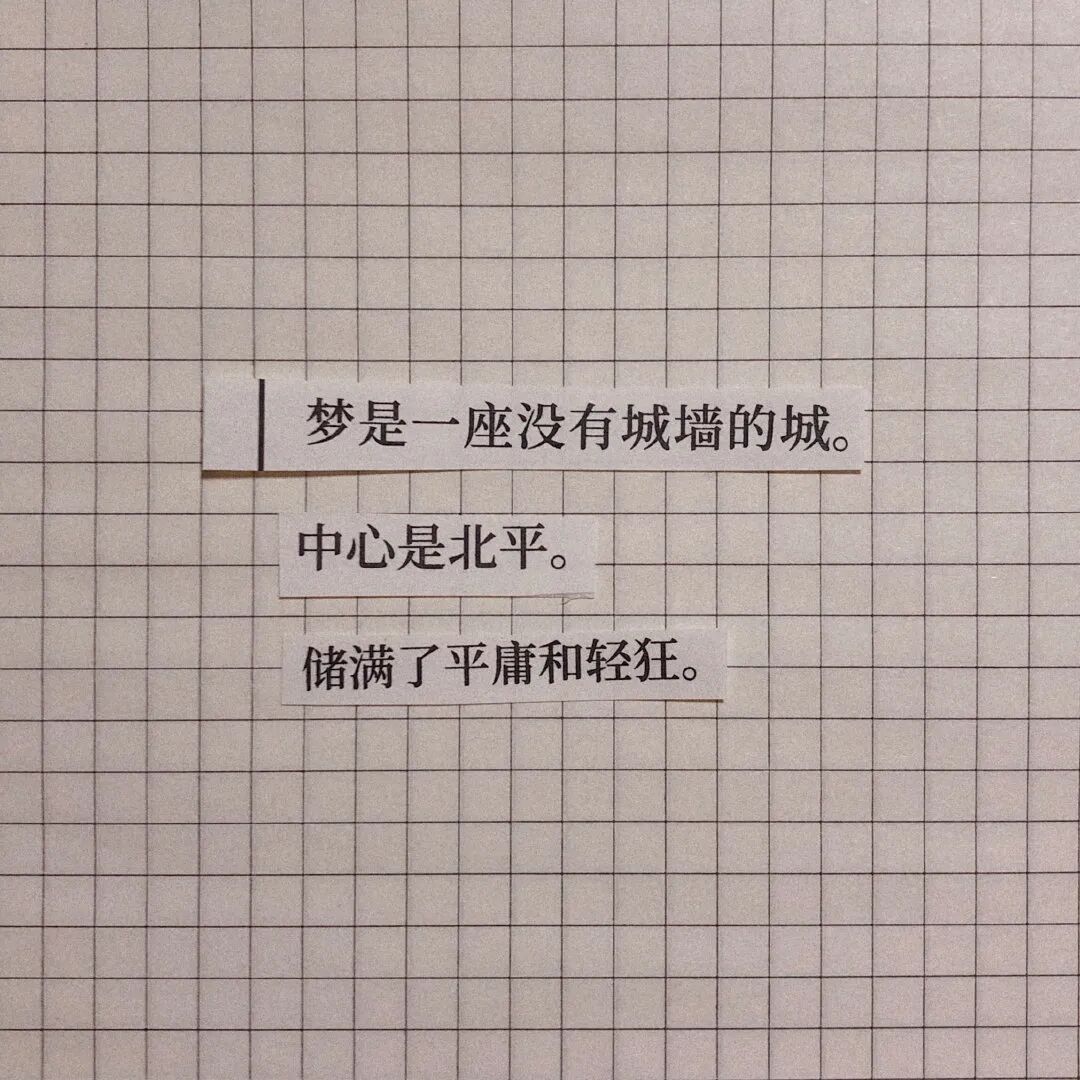 梦是一座没有城墙的城。
中心是北平。
储满了平庸和轻狂。